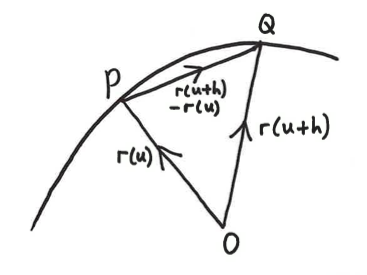 Q
P
r(u+h)
-r(u)
r(u+h)
r(u)
O